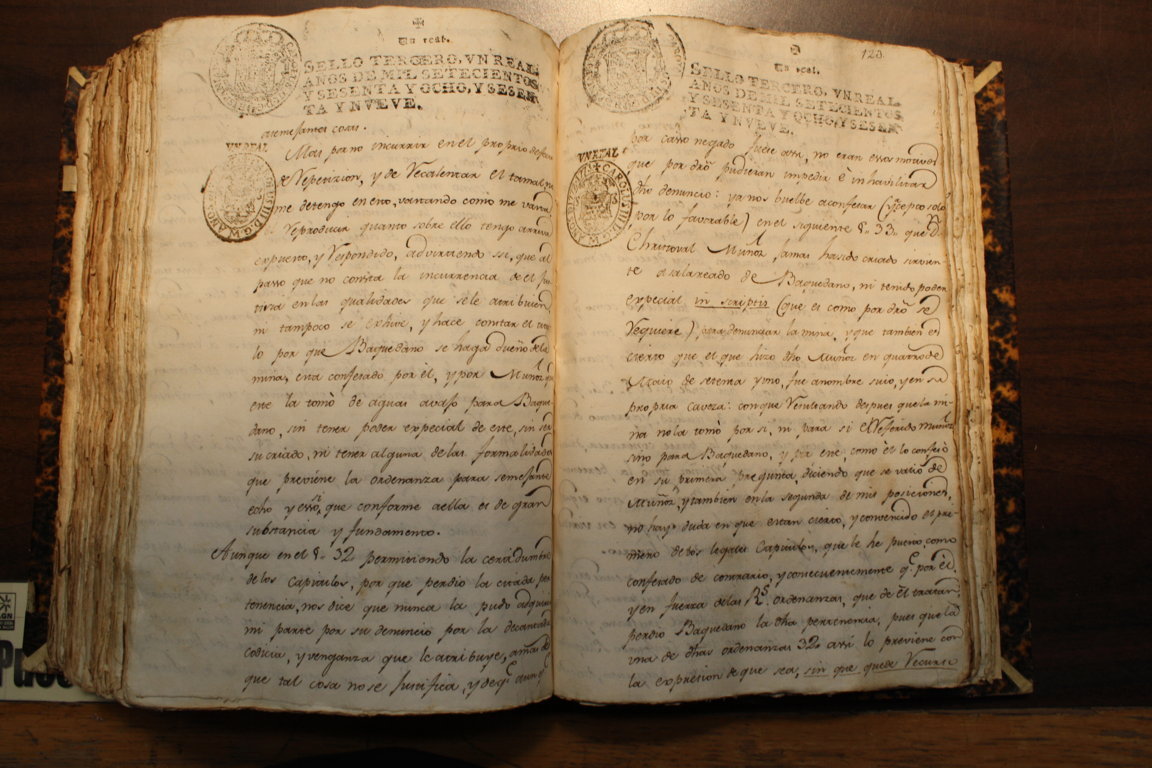 Un real.
SELLO TERCERO, VN REAL
AÑOS DE MIL SETECIENTOS
Y SESENTA Y OCHO, Y SESEN
TA Y NVEVE.
quemesamos cosas.
VN REAL
Mas por no incurrir en el proprio defec
de Repeticion, y de Recalentar el tamal, no
me detengo en eso, vastando como me vasta
Reproducir quanto sobre ello tengo arriva
expuesto, y Respondido, advirtiendo ssi, que al
passo que no consta la incurrencia de el
en las qualidades que sele atribuien,
ni tampoco se exhive, y hace constar el titu
lo por que Baquedano se haga dueño de la
mina, esta confesado por el, y por Muñoz, que
este la tomó de aguas avajo para Baque
dano, sin tener poder expecial de este, sin ser
su criado, ni tener alguna de las formalidades
que previene la ordenanza para semejante
echo y esso, si que conforme aella es de gran
substancia y fundamento.
Aunque en el §. 32 permitiendo la certidumbre
de los Capitulos, por que perdio la citada per
tenencia, nos dice que nunca la pudo adquirir
mi parte por su denuncio por la decantada
codicia, y venganza que le atribuye, amas de
que tal cosa no se justifica, y deq.e aun q.e
123
Un real.
SELLO TERCERO, VN REAL
AÑOS DE MIL SETECIENTOS
Y SESENTA Y OCHO, Y SESEN
TA Y NVEVE.
por casso negado fuese assi, no eran essos motivos
VN REAL
que por dró pudieran impedir é inhavilitar
dho denuncio: ya nos buelbe a confesar (y solo
por lo favorable) en el siguiente §. 33. que D.n
Christoval Muñoz jamas hasido criado sirvien
te asalareado de Baquedano, ni tenido poder
expecial in scriptis (que es como por dró se
Requiere) para denunciar la mina, y que tambien es
cierto que el que hizo dho Muñoz en quatro de
Março de setenta y uno, fue a nombre suio, y en su
propria caveza: conque Resultando despues que la mi
na no la tomó por si, ni para si el Referido Muñoz
sino para Baquedano, y por este, como él lo confessó
en su primera pregunta, diciendo que se valió de
Muñoz, y tambien en la segunda de mis posiciones,
no hay duda en que estan cierto, y convencido el pri-
mero de los legales Capitulos, que le he puesto, como
confesado de contrario, y consecuentemente q.e por él,
y en fuerza delas R.s ordenanzas, que de él tratan,
perdio Baquedano la dha pertenencia, pues que la
una de dhas ordenanzas 32. assi lo previene con
la expresion de que sea, sin que quede Recurso